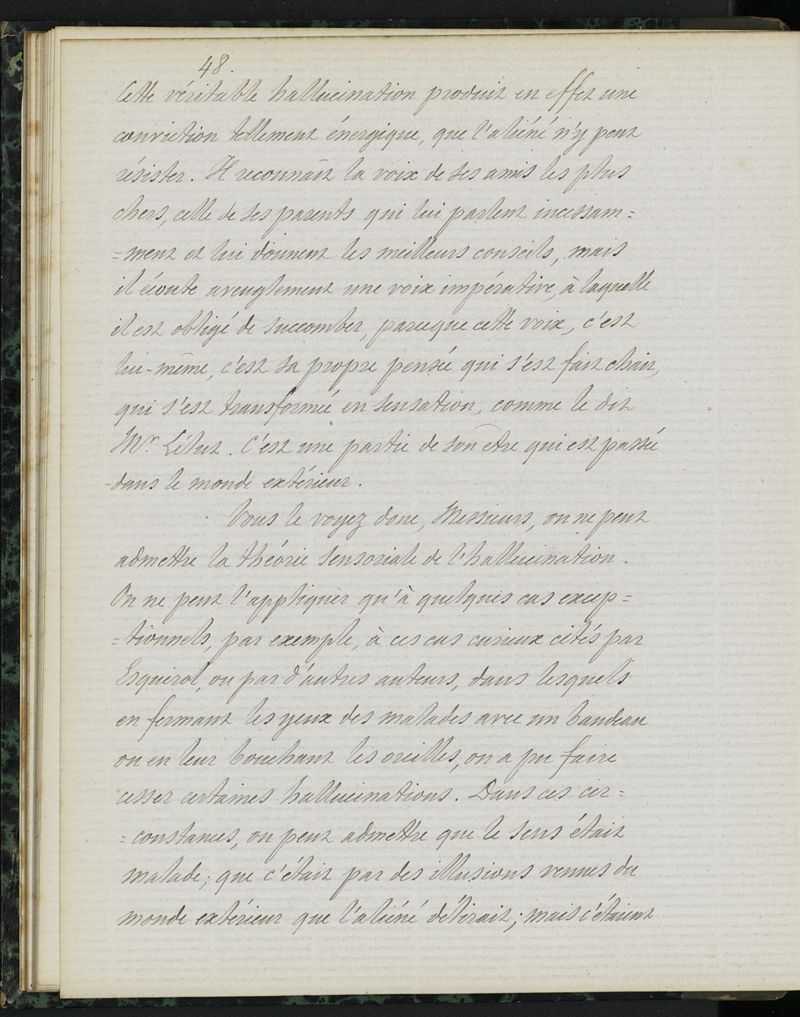 48.
Cette véritable hallucination produit en effet une
conviction tellement énergique, que l'aliéné n'y peut
résister. Il reconnait la voix de ses amis les plus
chers, celle de ses parents qui lui parlent incessam=
=ment et lui donnent les meilleurs conseils, mais
il écoute aveuglement une voix impérative, à laquelle
il est obligé de succomber, parceque cette voix, c'est
lui-même, c'est sa propre pensée qui s'est fait chair,
qui s'est transformée en sensation, comme le dit
Mr Lélut. C'est une partie de son être qui est passée
dans le monde extérieur.
Vous le voyez donc, Messieurs, on ne peut
admettre la théorie sensoriale de l'hallucination.
On ne peut l'appliquer qu'à quelques cas excep=
=tionnels, par exemple, à ces cas curieux cités par
Esquirol, ou par d'autres auteurs, dans lesquels
en fermant les yeux des malades avec un bandeau
ou en leur bouchant les oreilles, on a pu faire
cesser certaines hallucinations. Dans ces cir=
=constances, on peut admettre que le sens était
malade; que c'était par des illusions venues du
monde extérieur que l'aliéné délirait; mais c'étaient